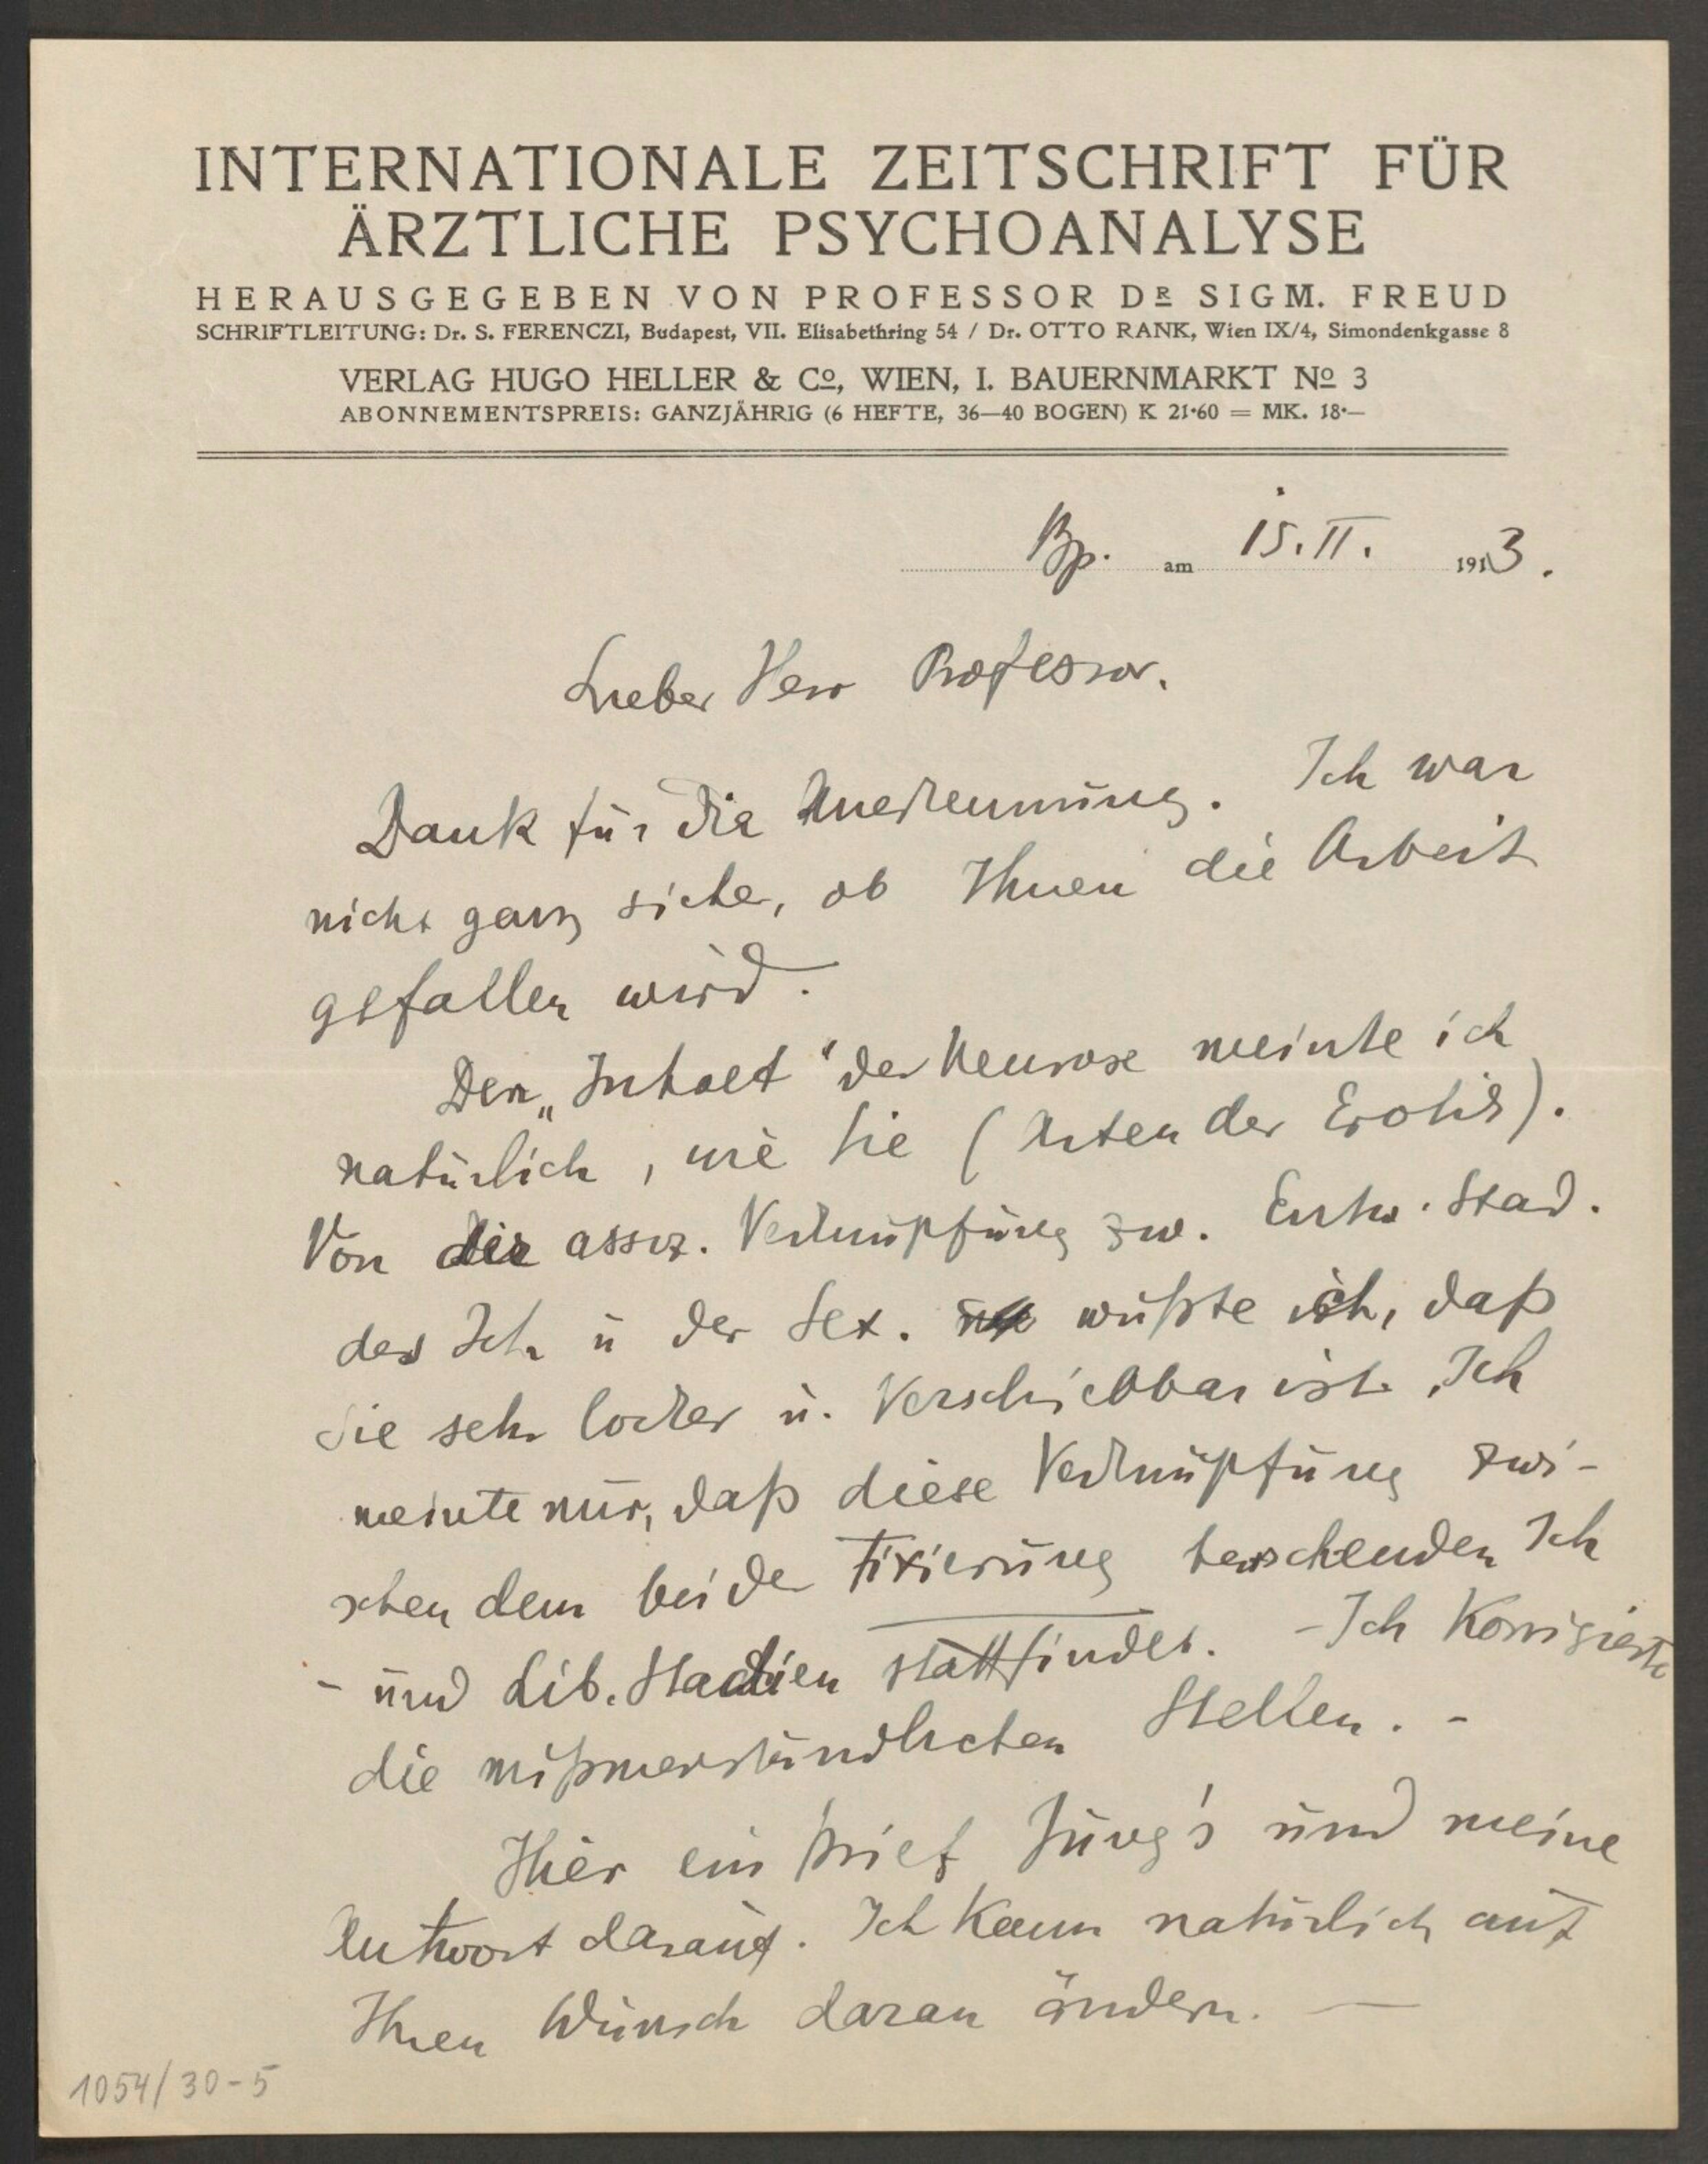 INTERNATIONALE ZEITSCHRIFT FÜR
ÄRZTLICHE PSYCHOANALYSE
HERAUSGEGEBEN VON PROFESSOR DR SIGM. FREUD
SCHRIFTLEITUNG: Dr. S. FERENCZI, Budapest, VII. Elisabethring 54 / Dr. OTTO RANK, Wien IX/4, Simondenkgasse 8
VERLAG HUGO HELLER & Co, WIEN, I. BAUERNMARKT No 3
ABONNEMENTSPREIS: GANZJÄHRIG (6 HEFTE, 36—40 BOGEN) K 21·60 = MK. 18·—
Bp. am 15. II. 1913.
Lieber Herr Professor.
Dank für die Anerkennung. Ich war
nicht ganz sicher, ob Ihnen die Arbeit
gefallen wird.
Den „Inhalt“ der Neurose meinte ich
natürlich, wie Sie (Arten der Erotik).
Von der assoz. Verknüpfung zw. Entw. Stad.
des Ich u der Sex. wußte ich, daß
sie sehr locker u. verschiebbar ist. Ich
meinte nur, daß diese Verknüpfung zwi-
schen dem bei der Fixierung herrschenden Ich
- und Lib. Stadien stattfindet. - Ich korrigierte
die mißverständlichen Stellen. -
Hier ein Brief Jung's und meine
Antwort darauf. Ich kann natürlich auf
Ihren Wunsch daran ändern. —
1054/30-5